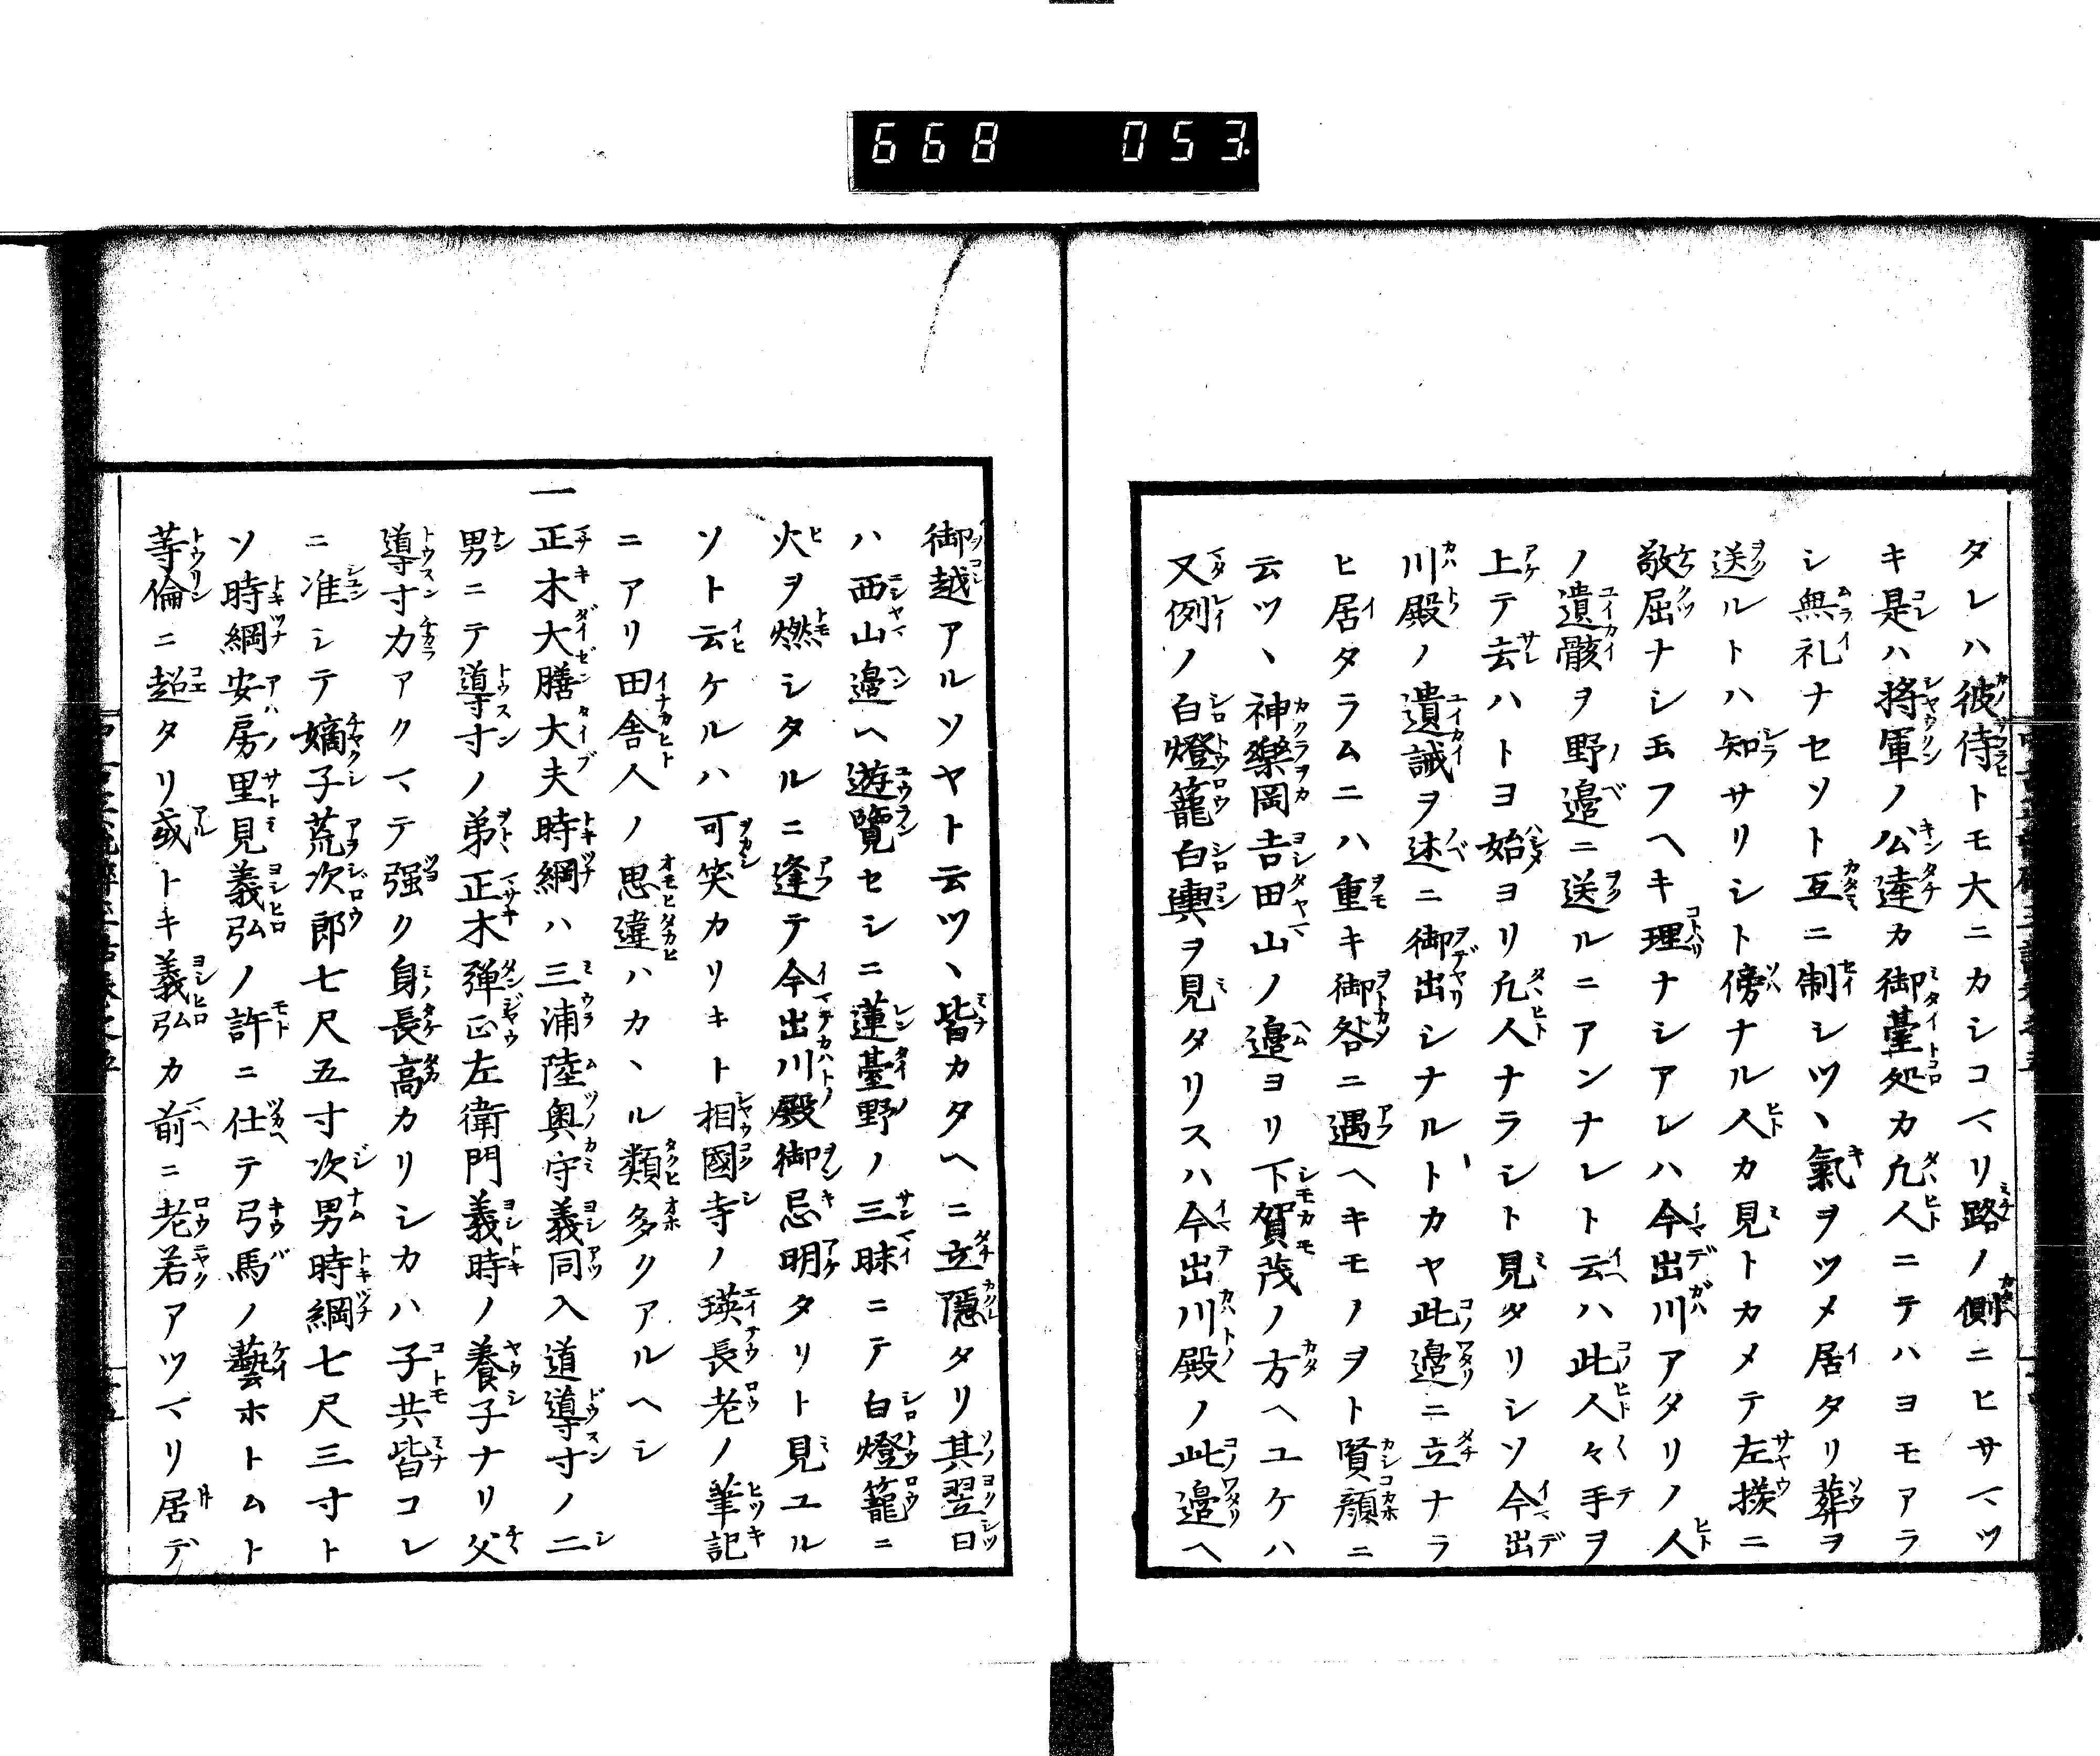 668 053
タレハ彼侍トモ大ニカシコマリ路ノ側ニヒサマツ
キ是ハ將軍ノ公達カ御臺処カ凢人ニテハヨモアラ
シ無礼ナセソト互ニ制シツヽ氣ヲツメ居タリ葬ヲ
送ルトハ知サリシト傍ナル人カ見トカメテ左様ニ
敬屈ナシ玉フヘキ理ナシアレハ今出川アタリノ人
ノ遺骸ヲ野邉ニ送ルニアンナレト云ハ此人々手ヲ
上テ去ハトヨ始ヨリ凢人ナラシト見タリシソ今出
川殿ノ遺誡ヲ述ニ御出シナルトカヤ此邉ニ立ナラ
ヒ居タラムニハ重キ御咎ニ遇ヘキモノヲト賢顔ニ
云ツヽ神樂岡吉田山ノ邉ヨリ下賀茂ノ方ヘユケハ
又例ノ白燈籠白輿ヲ見タリスハ今出川殿ノ此邉ヘ
御越アルソヤト云ツヽ皆カタヘニ立隱タリ其翌日
ハ西山邉ヘ遊覽セシニ蓮臺野ノ三昧ニテ白燈籠ニ
火ヲ燃シタルニ逢テ今出川殿御忌明タリト見ユル
ソト云ケルハ可笑カリキト相國寺ノ瑛長老ノ筆記
ニアリ田舎人ノ思違ハカヽル類多クアルヘシ
一正木大膳大夫時綱ハ三浦陸奥守義同入道導寸ノ二
男ニテ導寸ノ弟正木弾正左衛門義時ノ養子ナリ父
導寸力アクマテ强ク身長高カリシカハ子共皆コレ
ニ准シテ嫡子荒次郎七尺五寸次男時綱七尺三寸ト
ソ時綱安房里見義弘ノ許ニ仕テ弓馬ノ藝ホトムト
等倫ニ超タリ或トキ義弘カ前ニ老若アツマリ居デ